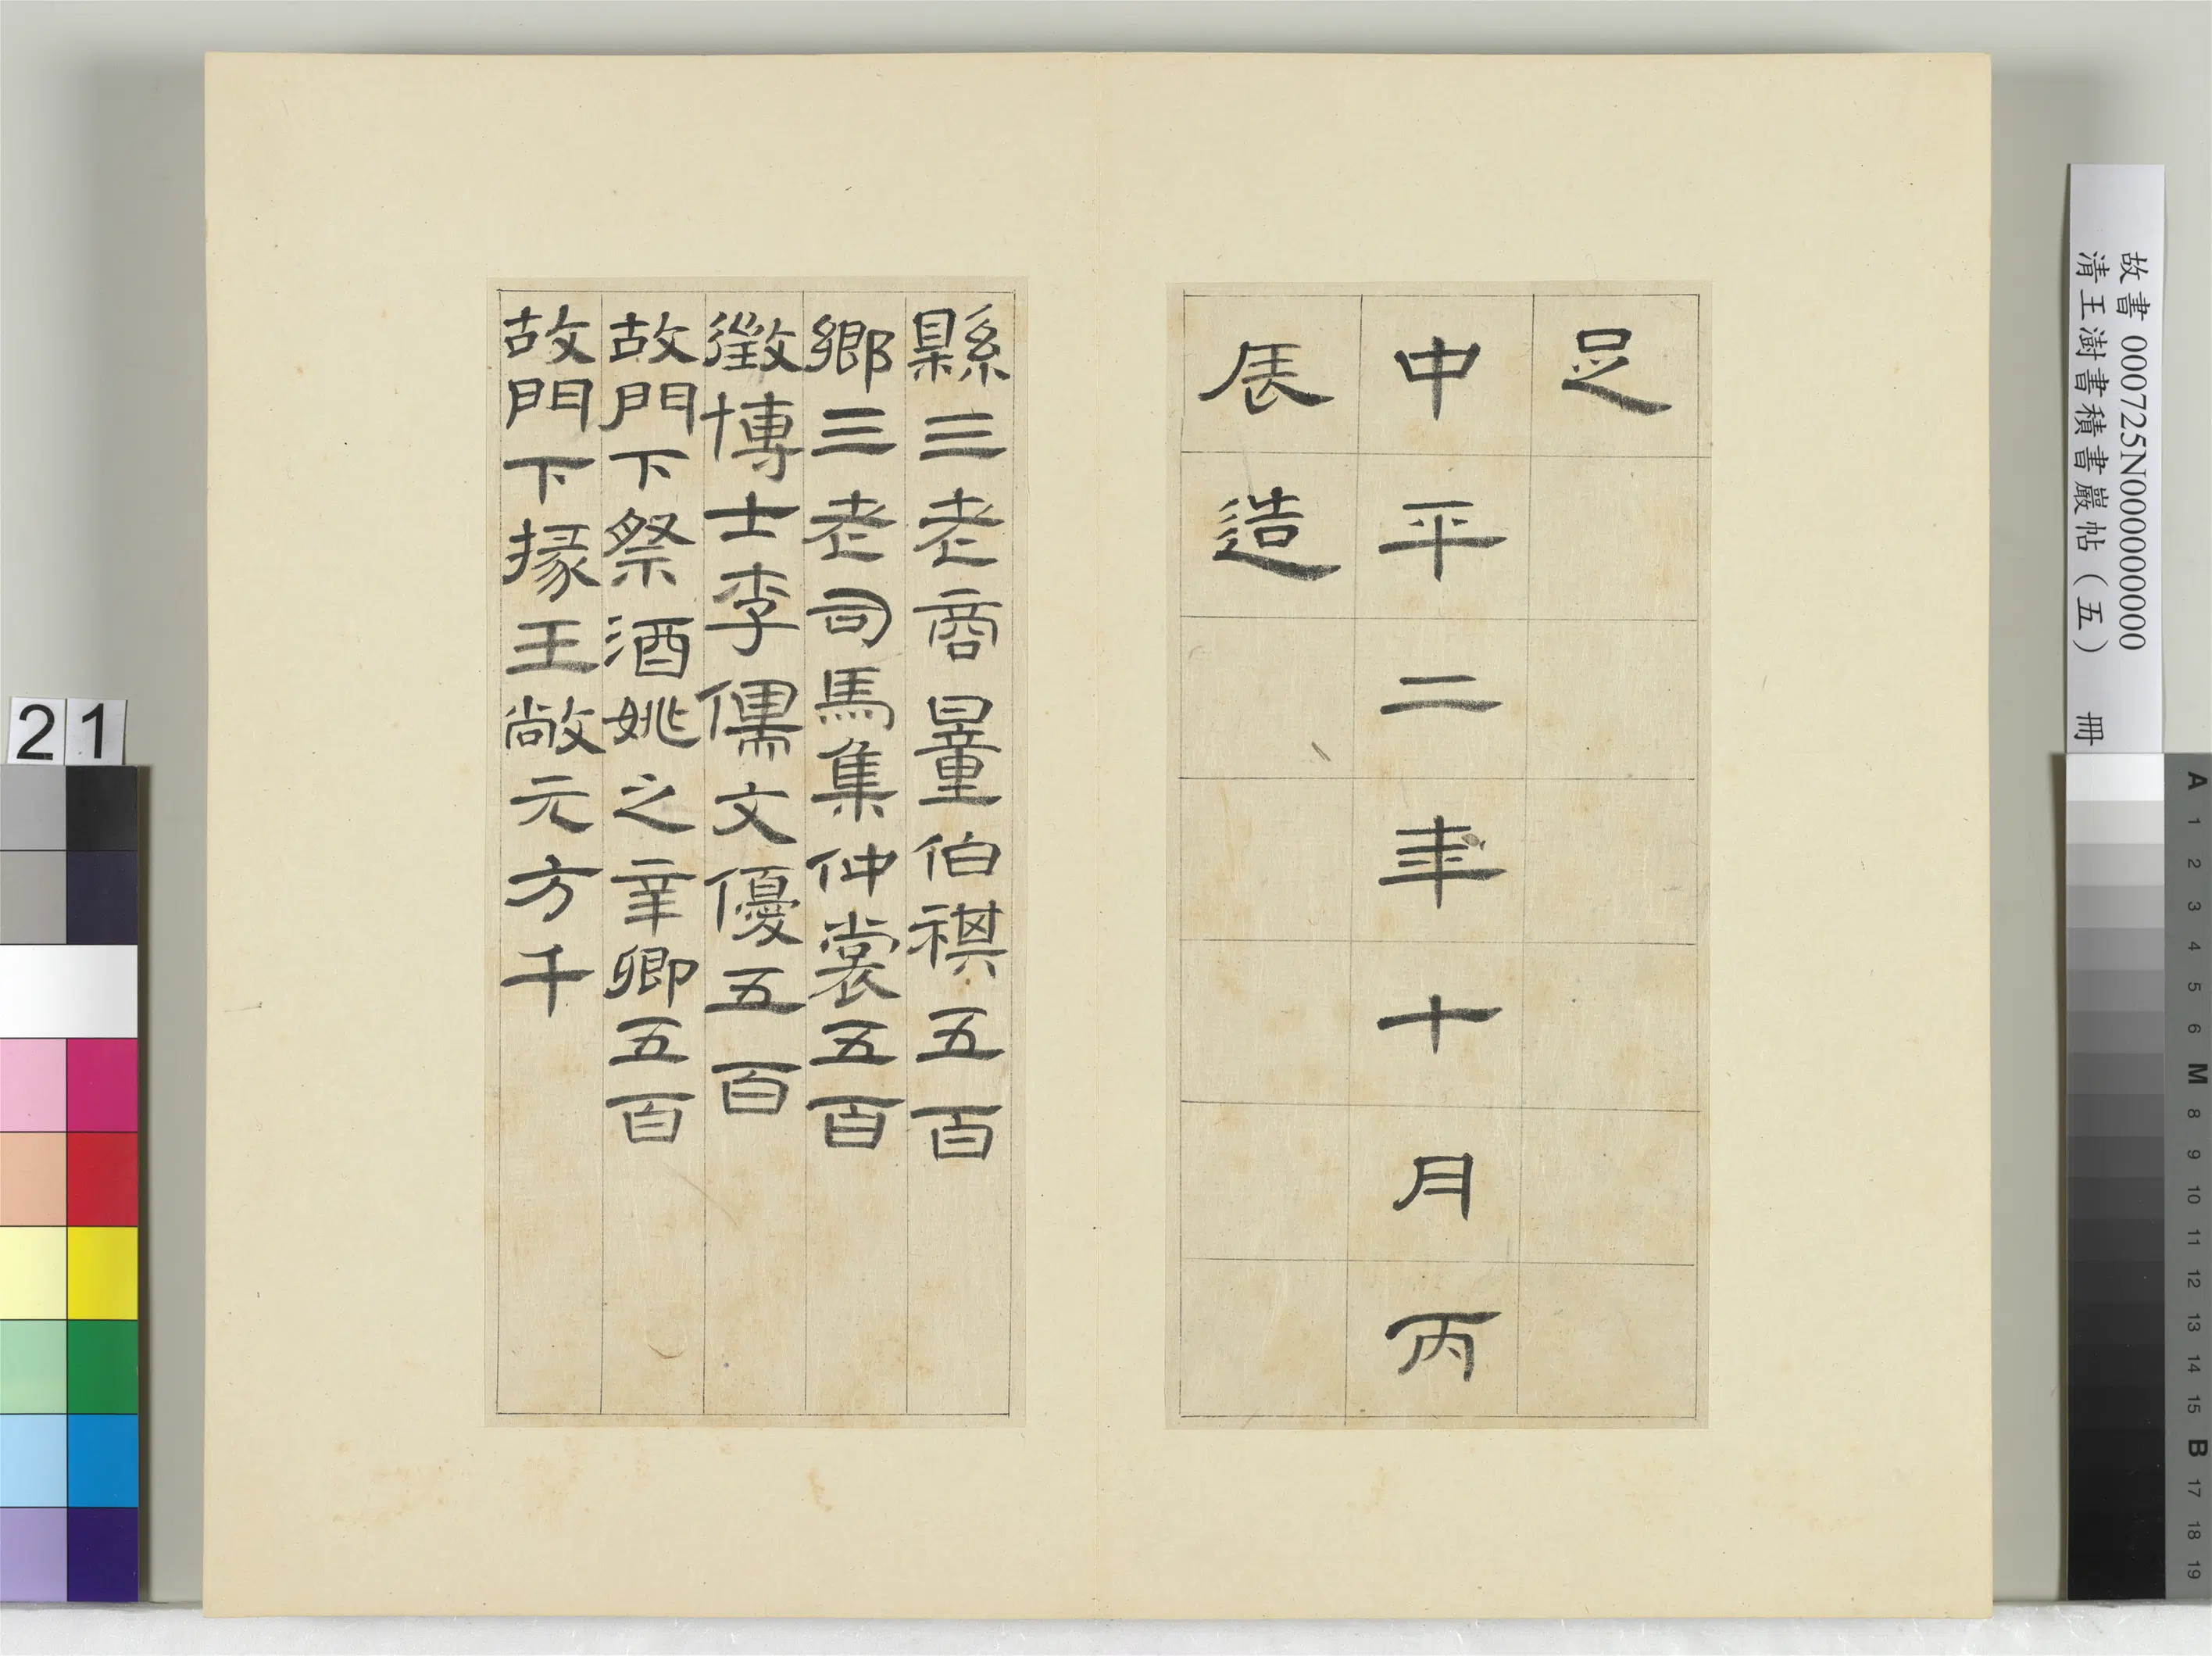 足
中平二年十月丙
辰造
縣三老商量伯祺五百
鄉三老司馬集仲裳五百
徵博士李儒文優五百
故門下祭酒姚之辛卿五百
故門下掾王敞元方千
故書 000725N000000000
清王澍書積書巖帖（五） 冊
21
A 1 2 3 4 5 6 M 8 9 10 11 12 13 14 15 B 17 18 19